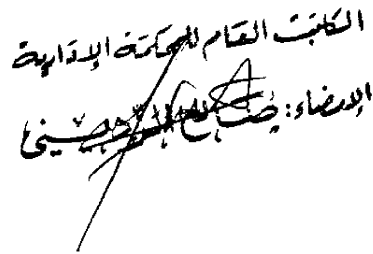 الكاتب العام للمحكمة الإدارية
الإمضاء: صالح